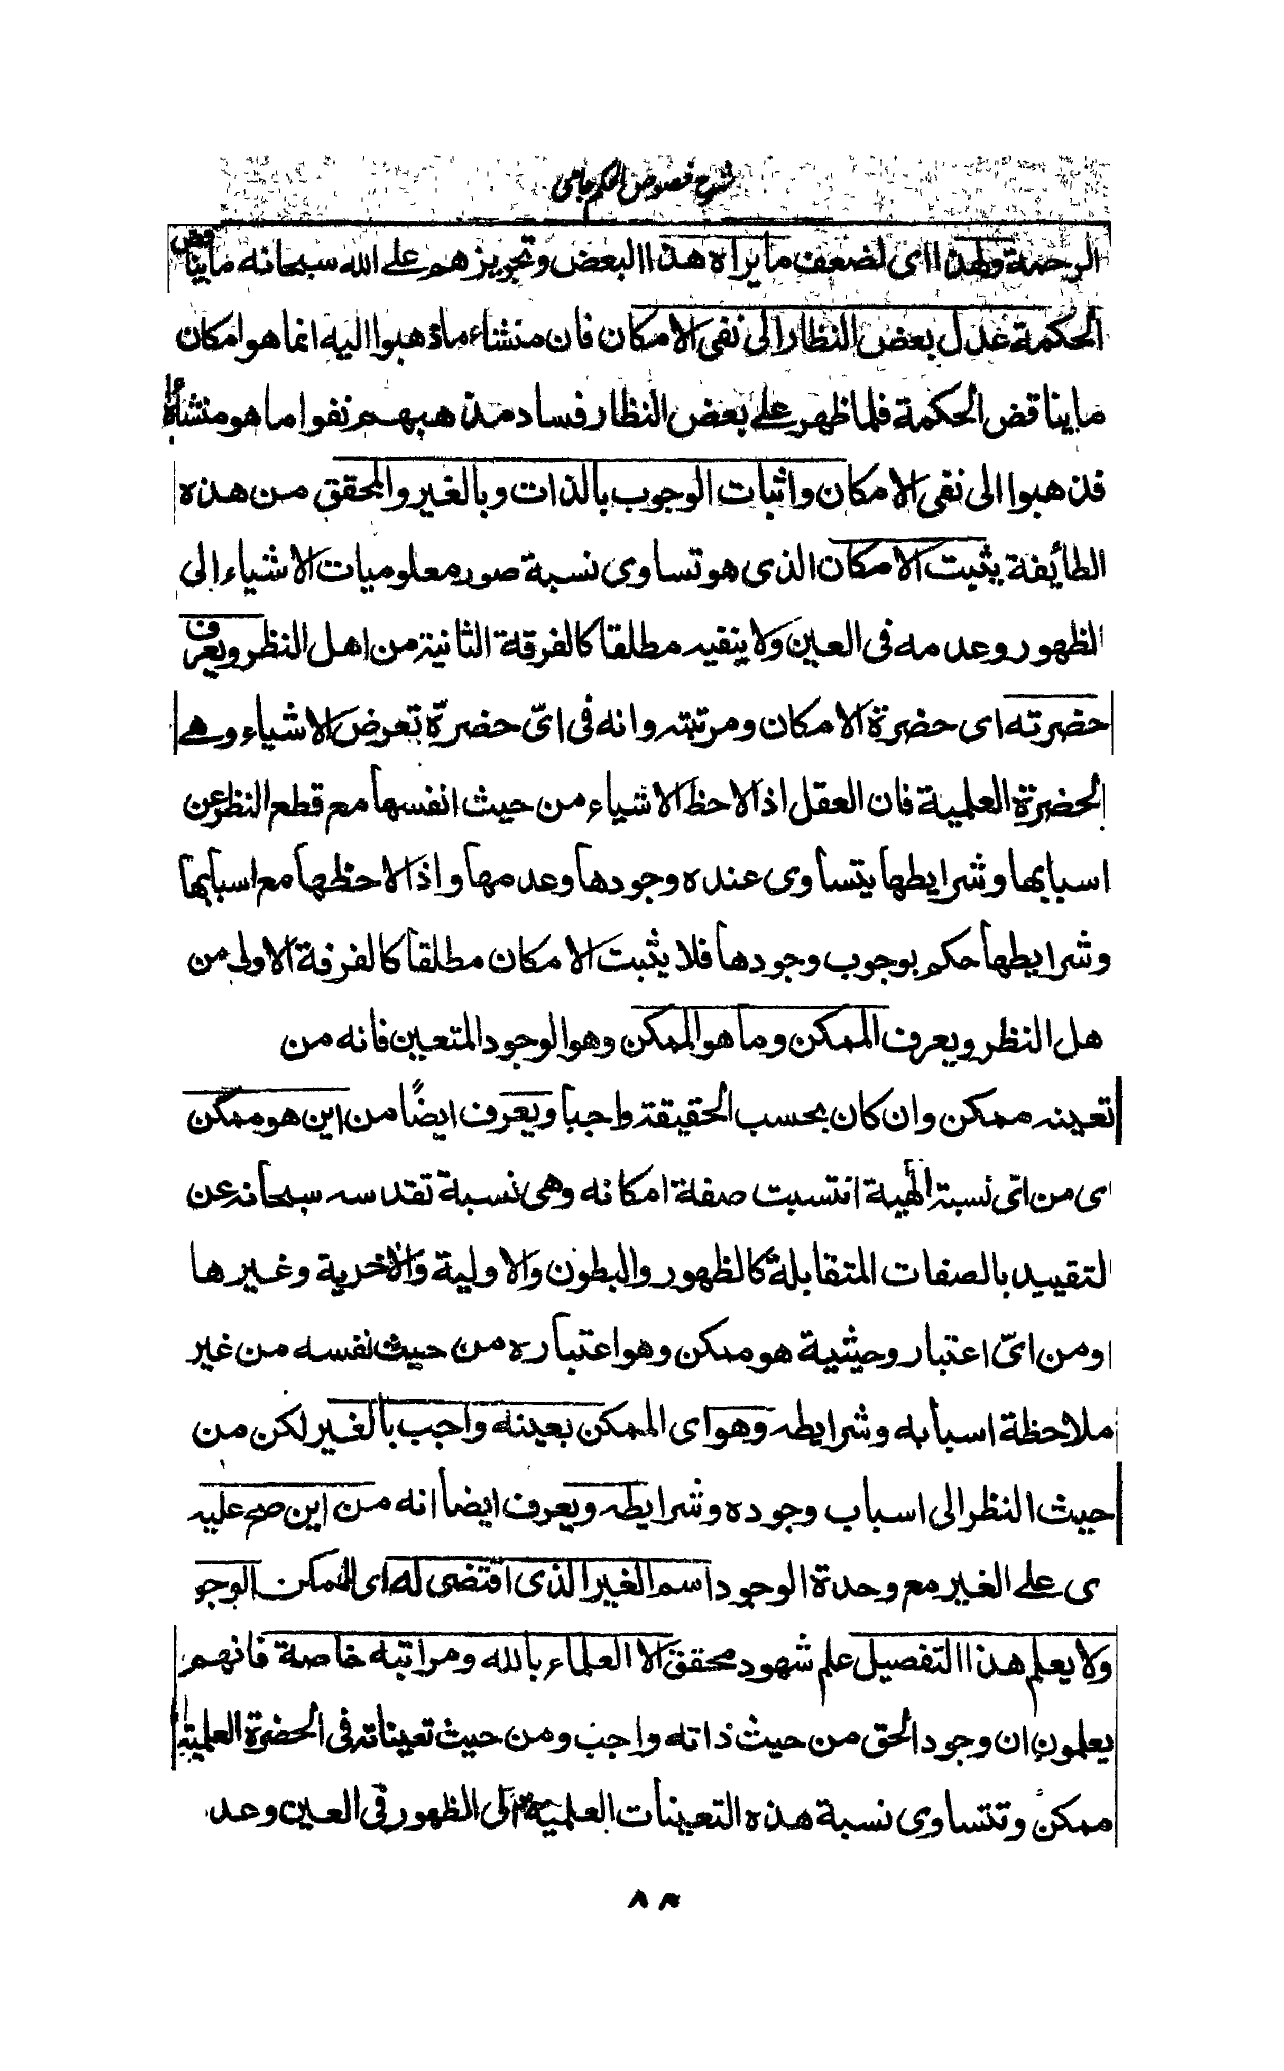 شرح فصوص الحكم جامى
الرحمة ولهذا اى لضعف ما يراه هذا البعض وتجويزهم على الله سبحانه ما يناقض
الحكمة عدل بعض النظار الى نفى الامكان فان منشاء ماذهبوا اليه انما هو امكان
ما يناقض الحكمة فلما ظهر على بعض النظار فساد مذهبهم نفوا ما هو منشأه
فذهبوا الى نفى الامكان واثبات الوجوب بالذات وبالغير والمحقق من هذه
الطائفة يثبت الامكان الذى هو تساوى نسبة صور معلوميات الاشياء الى
الظهور وعدمه فى العين ولا ينفيه مطلقا كالفرقة الثانية من اهل النظر ويعرف
حضرته اى حضرة الامكان ومرتبته وانه فى اىّ حضرة تعرض الاشياء وهى
الحضرة العلمية فان العقل اذا لاحظ الاشياء من حيث انفسها مع قطع النظر عن
اسبابها وشرايطها يتساوى عنده وجودها وعدمها واذا لاحظها مع اسبابها
وشرايطها حكم بوجوب وجودها فلا يثبت الامكان مطلقا كالفرقة الاولى من
هل النظر ويعرف الممكن وما هو الممكن وهو الوجود المتعين فانه من
تعينه ممكن وان كان بحسب الحقيقة واجبا ويعرف ايضًا من اين هو ممكن
ى من اىّ نسبة الٰهية انتسبت صفة امكانه وهى نسبة تقدسه سبحانه عن
لتقييد بالصفات المتقابلة كالظهور والبطون والاولية والآخرية وغيرها
او من اىّ اعتبار وحيثية هو ممكن وهو اعتباره من حيث نفسه من غير
ملاحظة اسبابه وشرايطه وهو اى الممكن بعينه واجب بالغير لكن من
حيث النظر الى اسباب وجوده وشرايطه ويعرف ايضا انه من اين صح عليه
ى على الغير مع وحدة الوجود اسم الغير الذى اقتضى له اى للممكن الوجو
ولا يعلم هذا التفصيل علم شهود محقق الا العلماء بالله ومراتبه خاصة فانهم
يعلمون ان وجود الحق من حيث ذاته واجب ومن حيث تعيناته فى الحضرة العلمية
ممكن وتتساوى نسبة هذه التعينات العلمية الى الظهور فى العين وعد